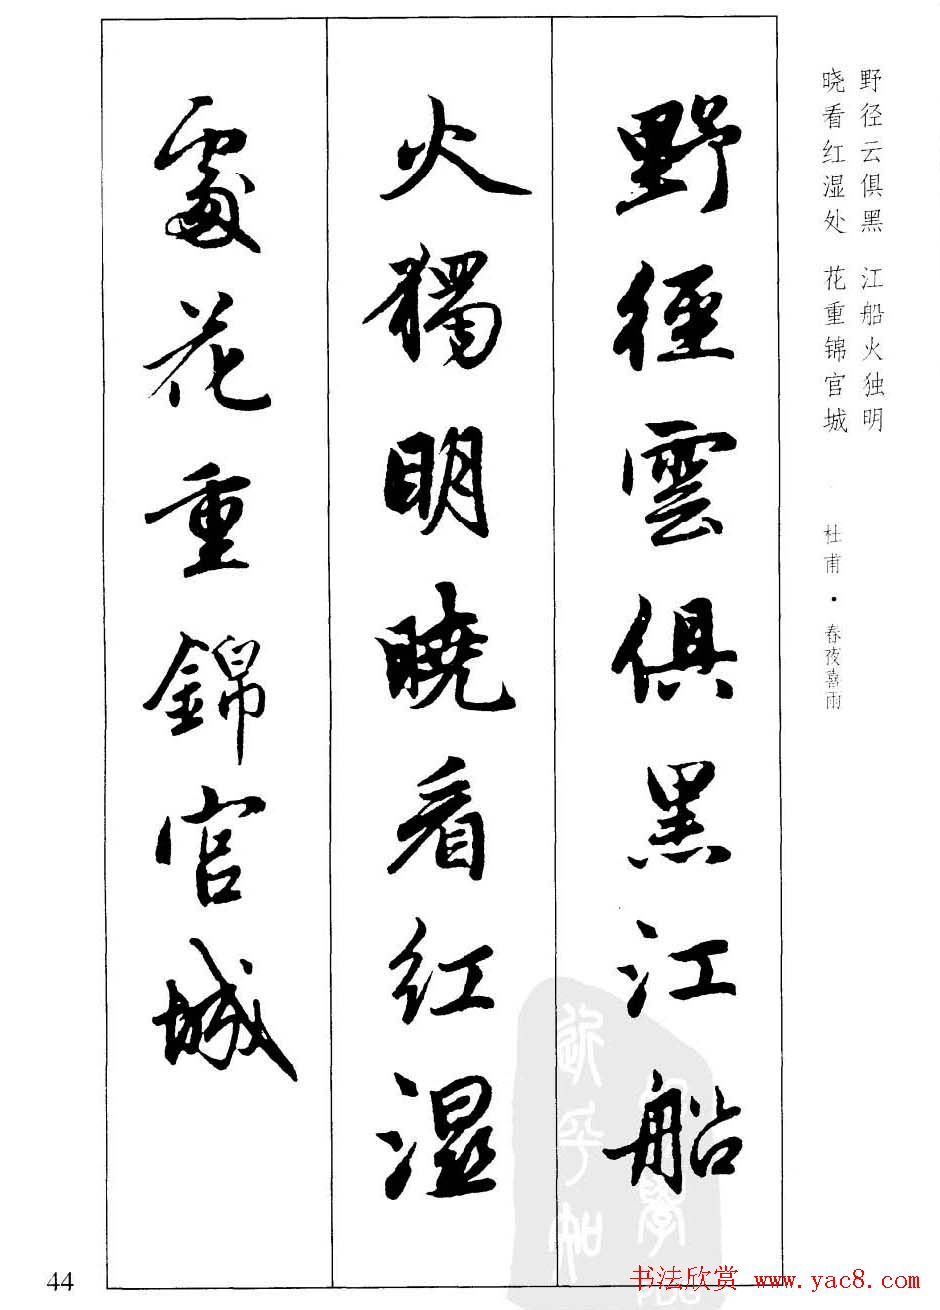 野径云俱黑 江船火独明
晓看红湿处 花重锦官城
杜甫·春夜喜雨
野徑雲俱黑江船
火獨明曉看红湿
處花重錦官城
44
书法欣赏 www.yac8.com